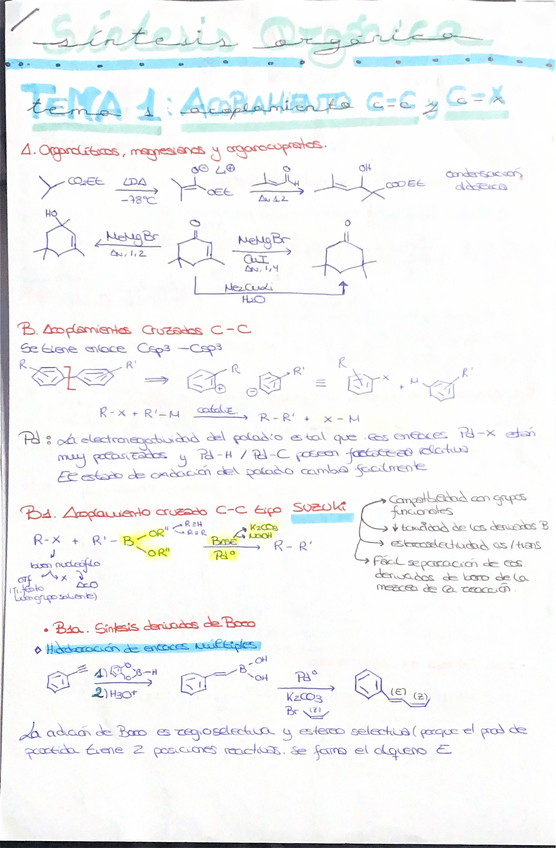 síntesis orgánica
TEMA 1: ACOPLAMIENTO C=C y C=X
A. Organolíticos, magnesianos y organocupratos.
CO2Et LDA -78ºC O⊖ Li⊕ OEt O H AN 1,2 OH COOEt condensación
HO MeMgBr AN, 1,2 O MeMgBr CuI AN 1,4 O
Me2CuLi
H2O
B. Acoplamientos Cruzados C-C
Se tiene enlace Csp3 - Csp3
R R' ⇒ R ⊕ ⊖ R' ≡ R X + M R'
R-X + R'-M → R-R' + X-M
Pd: La electronegatividad del paladio es tal que los enlaces Pd-X están
muy polarizados y Pd-H / Pd-C poseen relativa
El estado de oxidación del paladio cambia facilmente
B1. Acoplamiento cruzado C-C tipo SUZUKI
Compatibilidad con grupos
funcionales
↓ toxicidad de los derivados B
estereoselectividad cis/trans
Fácil separación de los
derivados de boro de la
mezcla de la reacción
R-X + R'-B OR'' OR'' R=H Base Pd° K2CO3 NaOH R-R'
buen nucleófilo
OTf X AcO
• B1a. Síntesis derivados de Boro
◇ Hidroboración de enlaces múltiples
1) O O B-H
2) H3O+
B OH OH
Pd°
K2CO3
Br (Z)
(E) (Z)
La adición de Boro es regioselectiva y estereo selectiva (porque el prod de
partida tiene 2 posiciones reactivas. Se forma el alqueno E